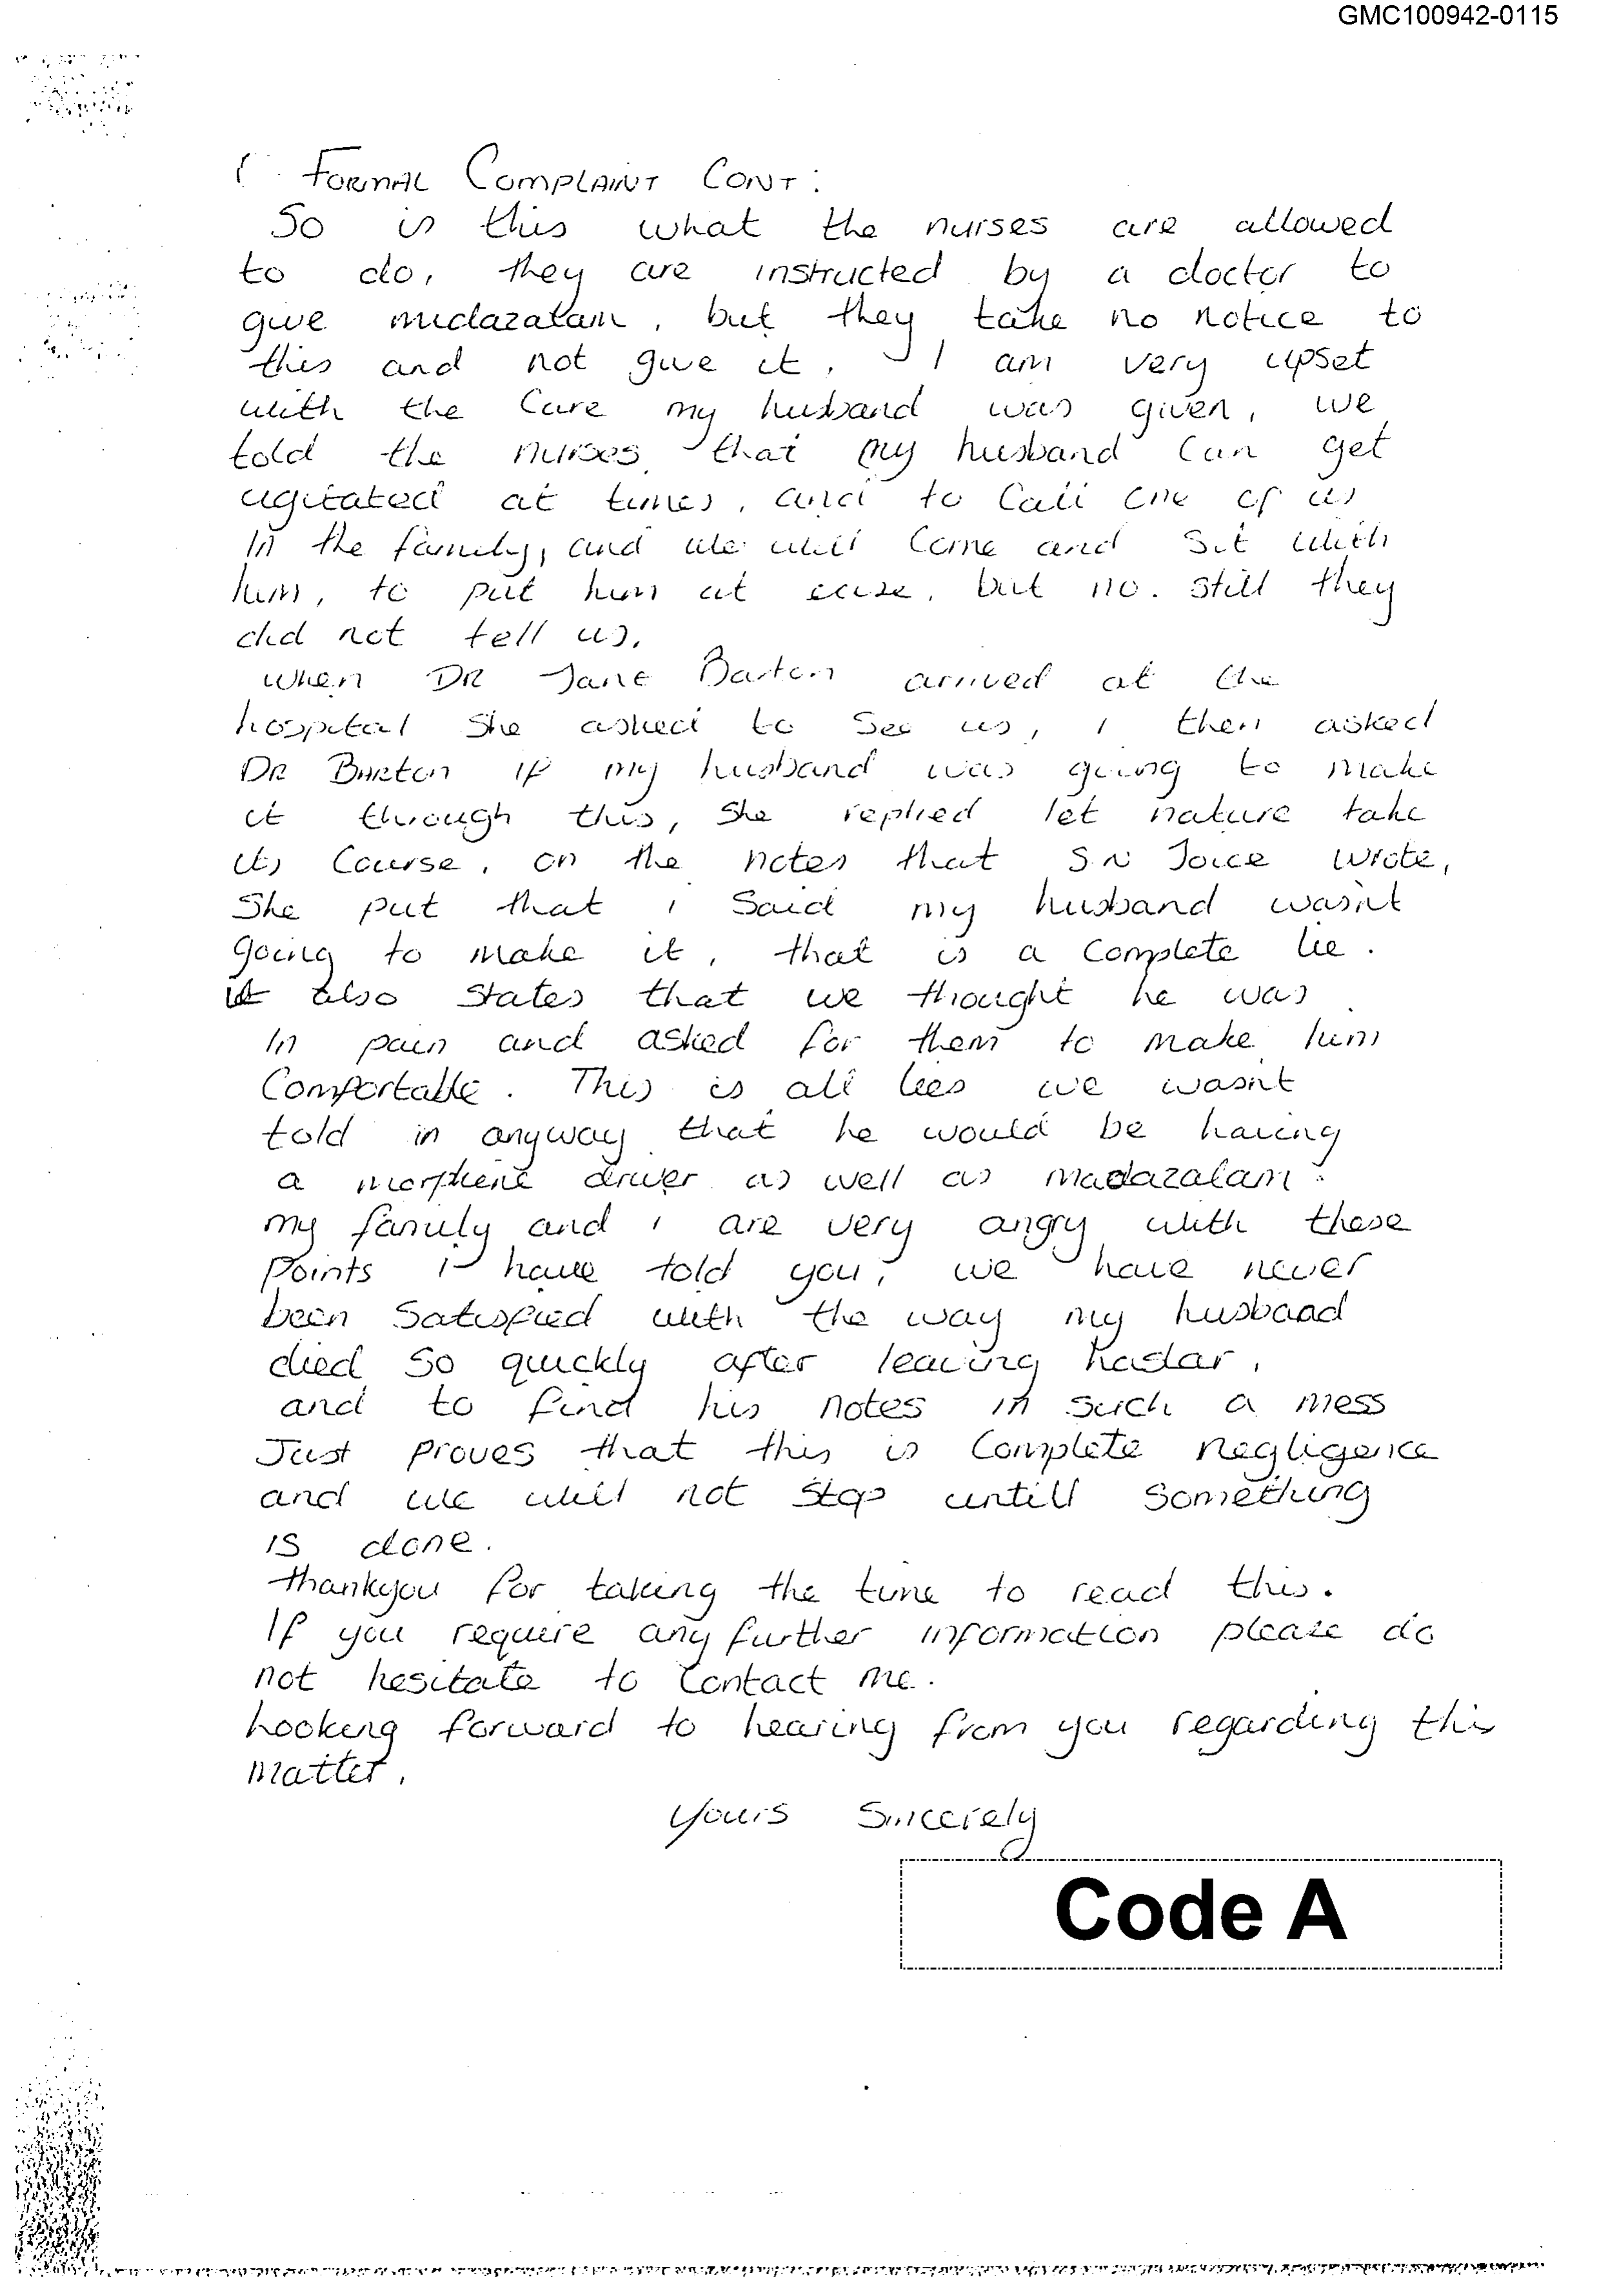 GMC100942-0115
FORMAL COMPLAINT CONT:
So is this what the nurses are allowed
to do, they are instructed by a doctor to
give midazalam, but they take no notice to
this and not give it. I am very upset
with the care my husband was given, we
told the nurses that my husband can get
agitated at times, and to call one of us
in the family, and we will come and sit with
him, to put him at ease, but no. still they
did not tell us.
when DR Jane Barton arrived at the
hospital she asked to see us, i then asked
DR Barton if my husband was going to make
it through this, she replied let nature take
its course, on the notes that S.N Joice wrote,
She put that i said my husband wasn't
going to make it, that is a complete lie.
it also states that we thought he was
in pain and asked for them to make him
comfortable. This is all lies we wasn't
told in anyway that he would be having
a morphene driver as well as madazalam.
my family and i are very angry with these
points i have told you, we have never
been satisfied with the way my husband
died so quickly after leaving haslar,
and to find his notes in such a mess
Just proves that this is complete negligence
and we will not stop untill something
is done.
thankyou for taking the time to read this.
If you require any further information please do
not hesitate to contact me.
Looking forward to hearing from you regarding this
matter.
yours Sincerely
Code A